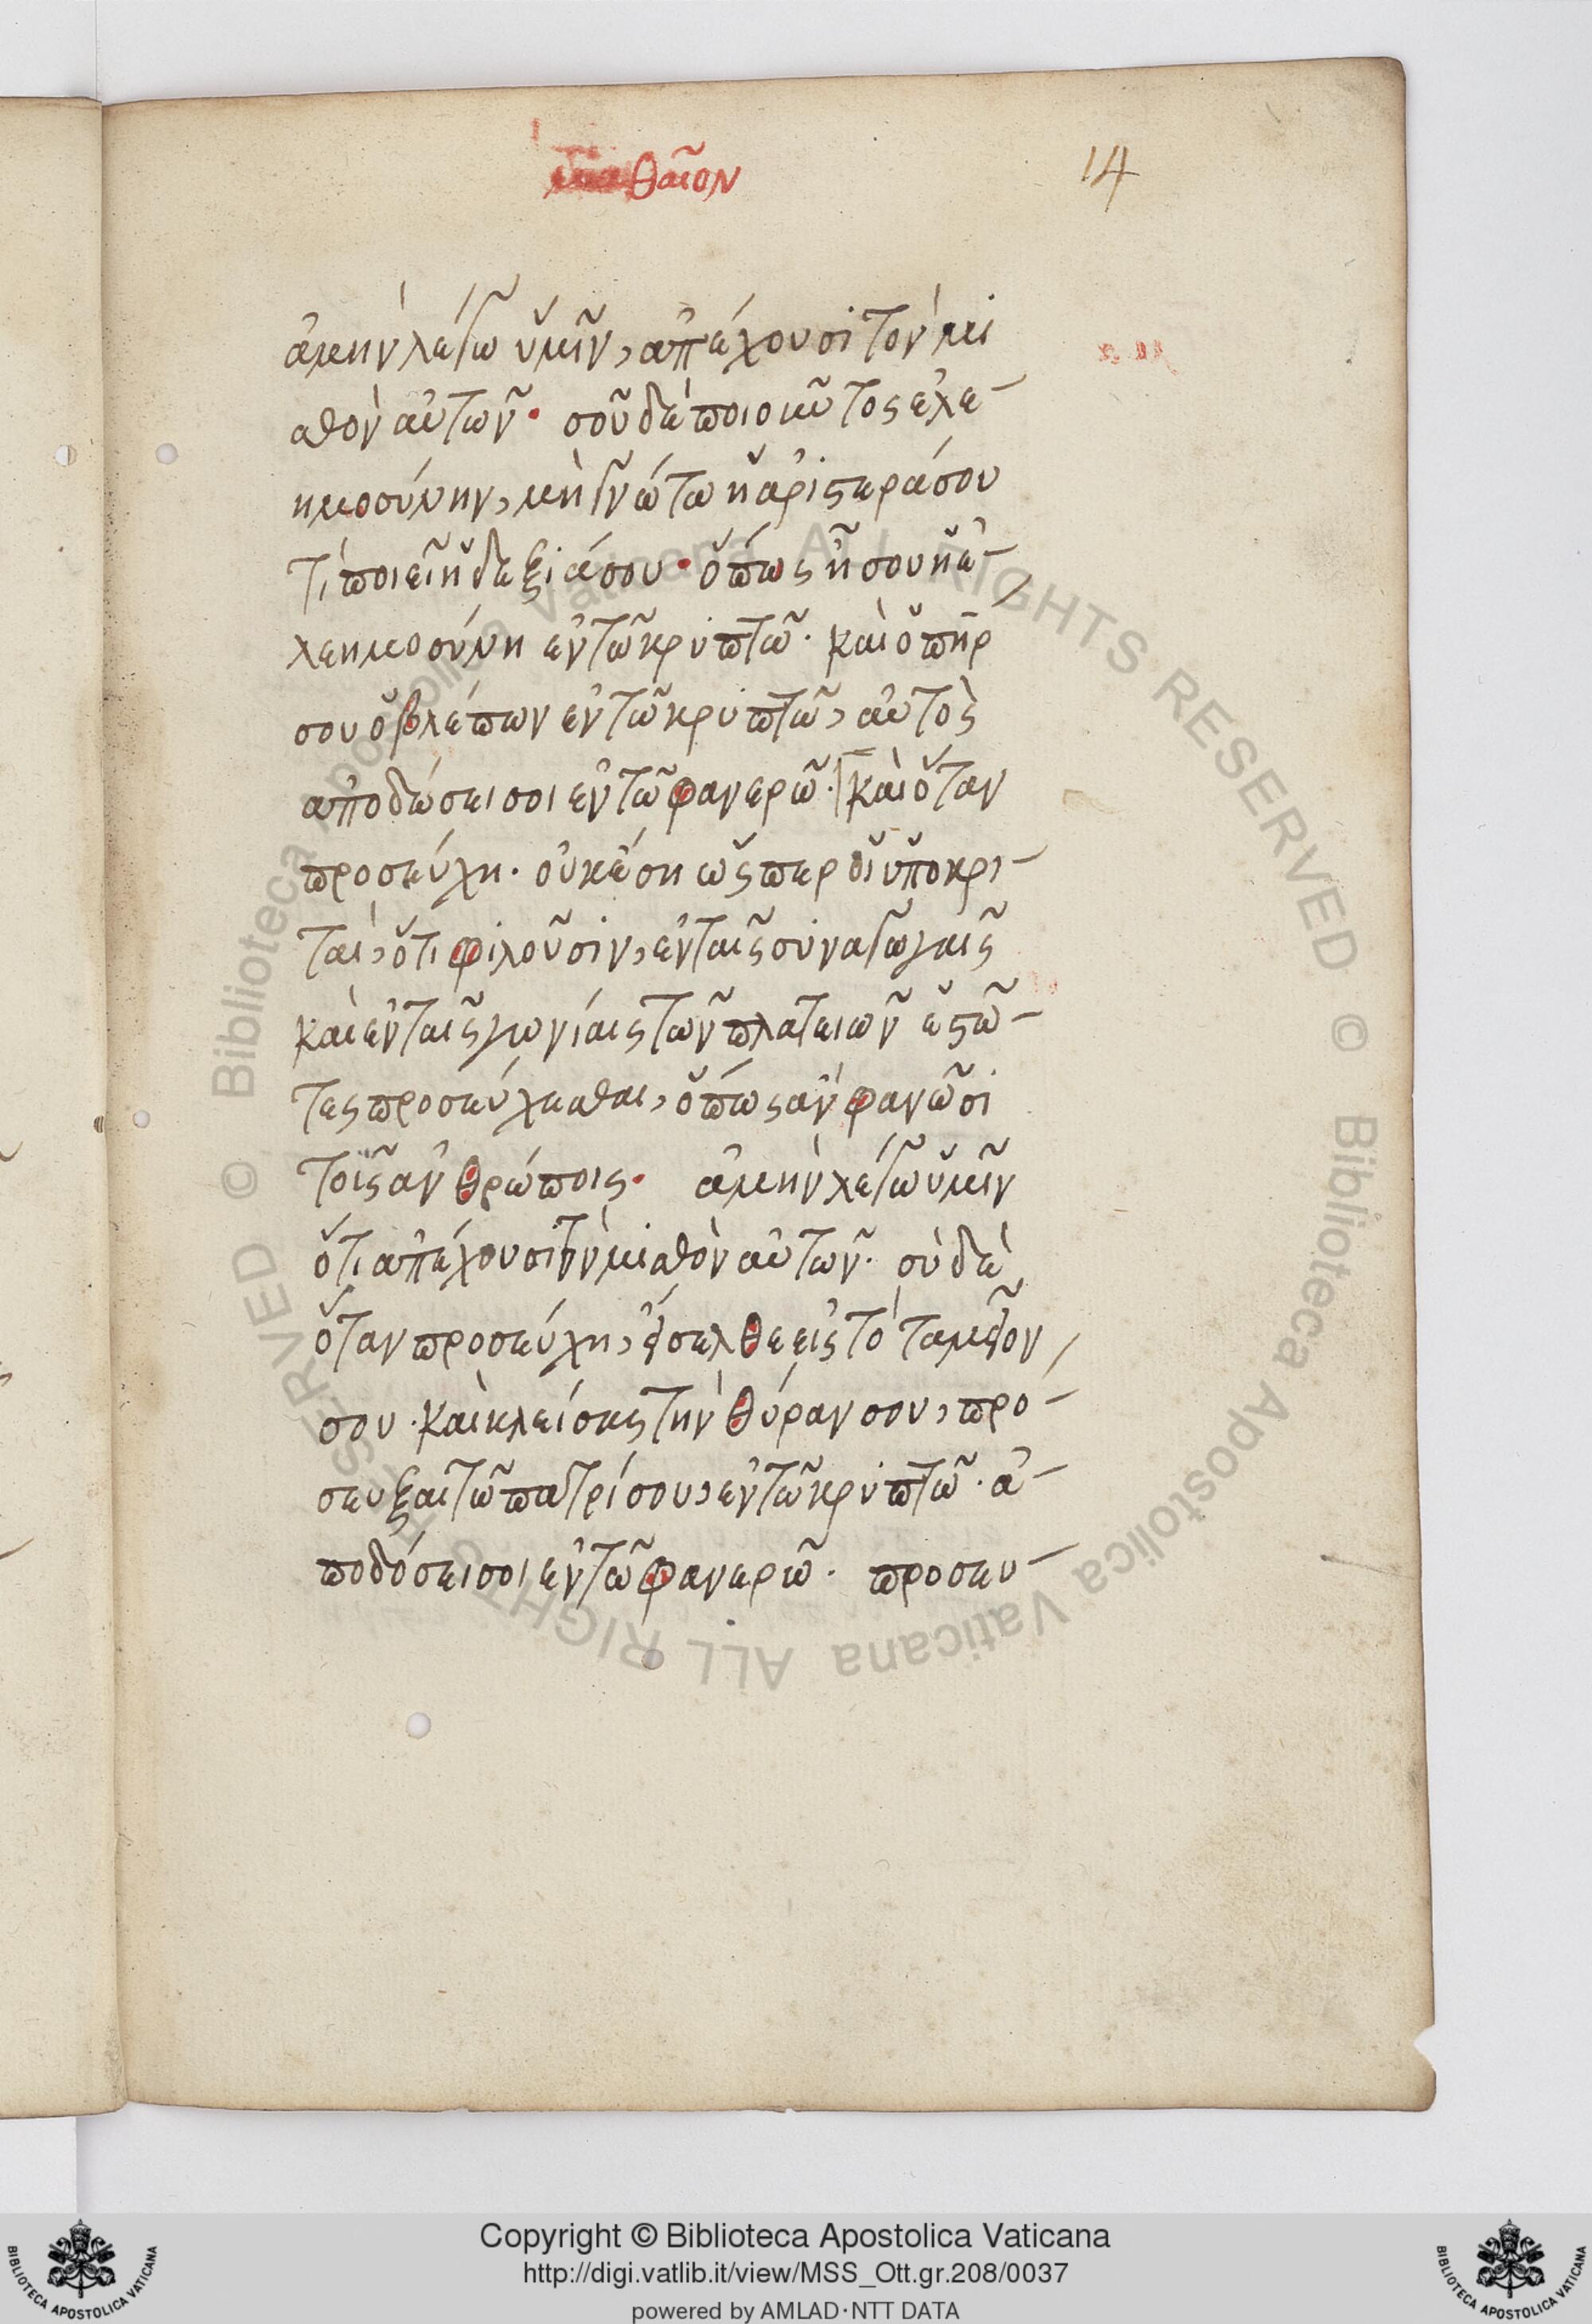 θαῖον
14
ἀμὴν λέγω ὑμῖν, ἀπέχουσι τὸν μι
σθὸν αὐτῶν· σοῦ δὲ ποιοῦντος ἐλε
ημοσύνην, μὴ γνώτω ἡ ἀριστερά σου
τί ποιεῖ ἡ δεξιά σου· ὅπως ἡ σου ἡ ἐ
λεημοσύνη ἐν τῶ κρυπτῶ· καὶ ὁ πηρ
σου ὁ βλέπων ἐν τῶ κρυπτῶ, αὐτὸς
ἀποδώσει σοι ἐν τῶ φανερῶ· καὶ ὅταν
προσεύχη· οὐκ ἔση ὥσπερ οἱ ὑποκρι
ταὶ, ὅτι φιλοῦσιν, ἐν ταῖς συναγωγαῖς
καὶ ἐν ταῖς γωνίαις τῶν πλατειῶν ἑστῶ
τες προσεύχεσθαι, ὅπως ἂν φανῶσι
τοῖς ἀνθρώποις· ἀμὴν λέγω ὑμῖν
ὅτι ἀπέχουσι τὸν μισθὸν αὐτῶν· σὺ δὲ
ὅταν προσεύχη, εἴσελθε εἰς τὸ ταμεῖον
σου· καὶ κλείσας τὴν θύραν σου, πρό
σευξαι τῶ πατρί σου, ἐν τῶ κρυπτῶ· ἀ
ποδόσει σοι ἐν τῶ φανερῶ· προσευ
Copyright © Biblioteca Apostolica Vaticana
http://digi.vatlib.it/view/MSS_Ott.gr.208/0037
powered by AMLAD·NTT DATA
BIBLIOTECA APOSTOLICA VATICANA
BIBLIOTECA APOSTOLICA VATICANA
© Biblioteca Apostolica Vaticana ALL RIGHTS RESERVED © Biblioteca Apostolica Vaticana ALL RIGHTS RESERVED